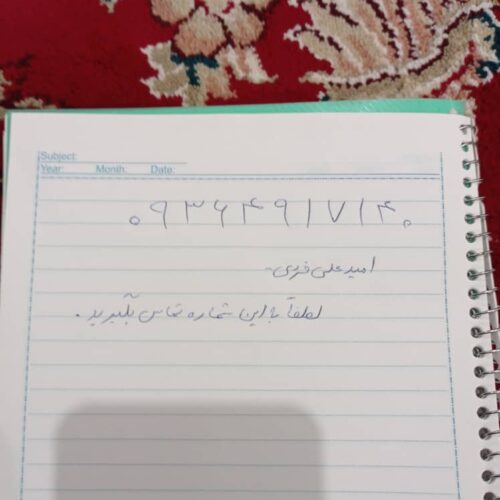 Subject:
Year: Month: Date:
۰۹۳۶۴۹۱۷۱۴۰
امید علی فردی.
لطفاً با این شماره تماس بگیرید.